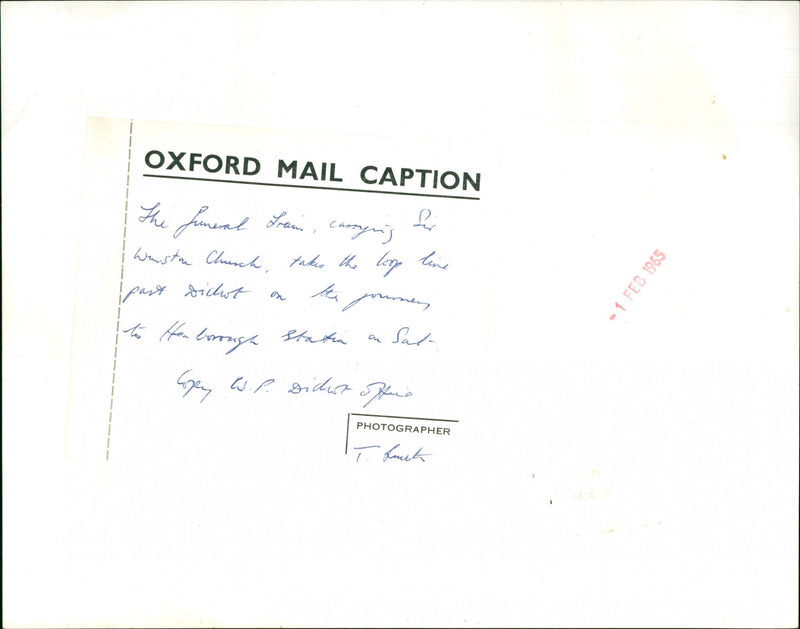 OXFORD MAIL CAPTION
The funeral train, carrying Sir
Winston Church, takes the loop line
past Didcot on the journey
to Hanborough Station on Sat.
Copy W.P. Didcot Office
PHOTOGRAPHER
T.
- 1 FEB 1965